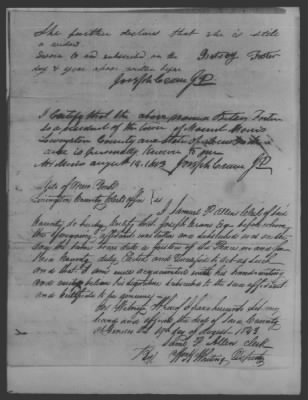 She further declares that she is still
a widow
Sworn to and subscribed on the Betsey Foster
day & year above written before
Joseph Crane JP
I Certify that the above named Betsey Foster
is a resident of the town of Mount Morris
Livingston County and State of New York and
she is personally known to me
Mt Morris August 14 1843 Joseph Crane JP
State of New York
Livingston County Clerks Office ss
I Samuel P. Allen Clerk of said
County do hereby Certify that Joseph Crane Esqr before whom
the foregoing was taken and subscribed was on the
day the same bears date a Justice of the Peace in and for
said County duly Elected and Qualified to act as such
and that I am well acquainted with his handwriting
and believe his signature subscribed to the said affidavit
and Certificate to be genuine
In Witness Whereof I have hereunto set my
hand and affixed the Seal of said County
at Geneseo the day of August 1843.
Saml P. Allen Clerk
By Whiting Deputy